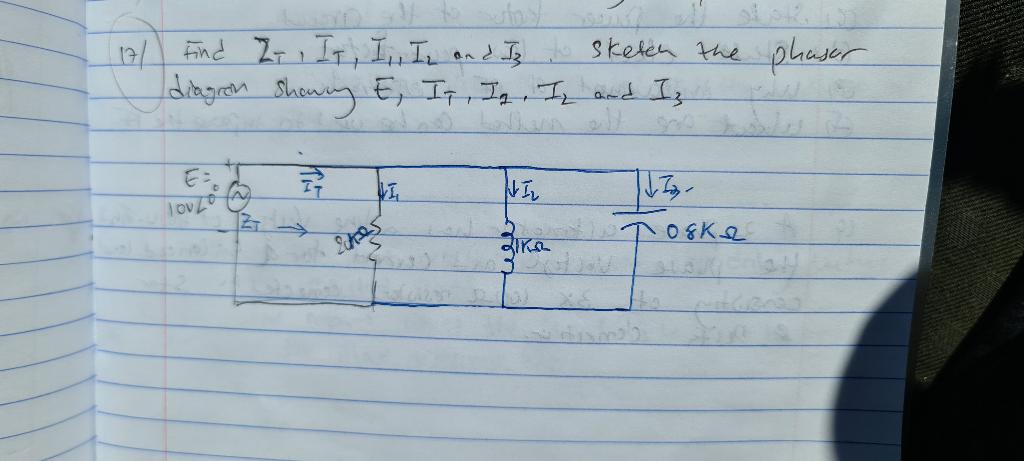 17/ Find ZT, IT, I1, I2 and I3. Sketch the phasor
diagram showing E, IT, I1, I2 and I3
E=
10V∠0°
+
-
ZT
IT
I1
I2
I3
1KΩ
0.8KΩ